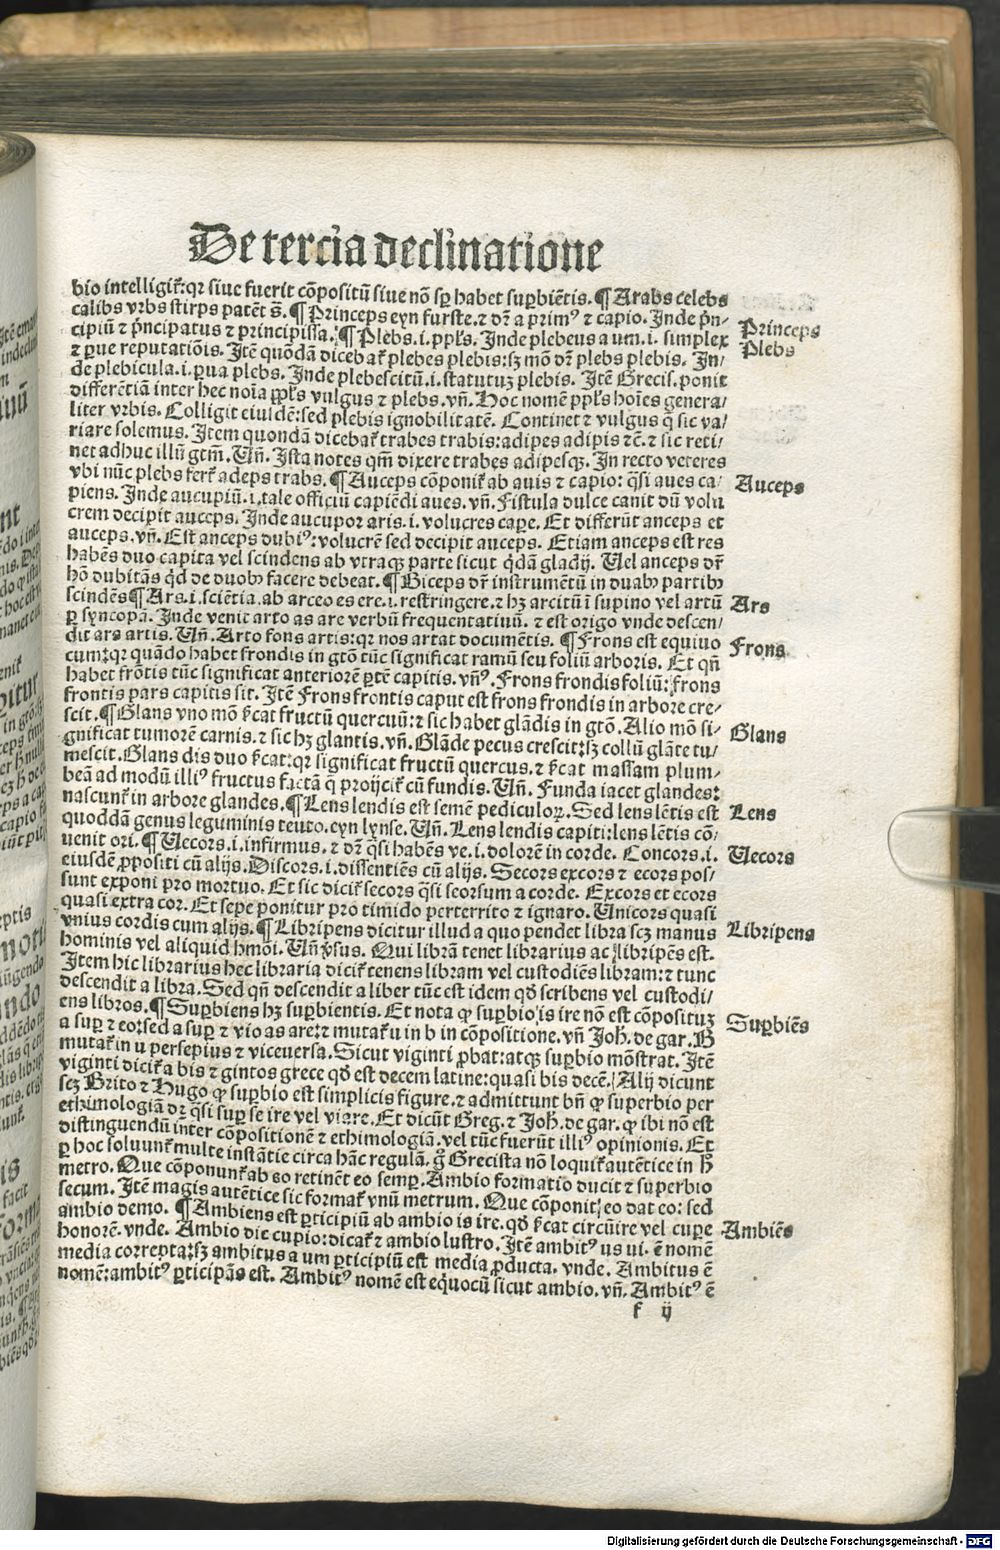 De tercia declinatione
bio intelligit̃: qr siue fuerit cōpositū siue nō sp̱ habet sup̱biētis. ¶ Arabs celebs
calibs vrbs stirps patēt s̄. ¶ Princeps eyn furste. ⁊ dr̄ a primꝰ ⁊ capio. Inde p̄n-
cipiū ⁊ p̄ncipatus ⁊ principissa. ¶ Plebs .i. ppl̄s. Inde plebeus a um .i. simplex
⁊ ꝑue reputatiōis. Itē quōdā dicebat̃ plebes plebis: sꝫ mō dr̄ plebs plebis. In-
de plebicula .i. ꝑua plebs. Inde plebescitū .i. statutuꝫ plebis. Itē Grecis. ponit
differētiā inter hec noīa ppl̄s vulgus ⁊ plebs. vñ. Hoc nomē ppl̄s hoīes genera-
liter vrbis. Colligit eiuldē: sed plebis ignobilitatē. Continet ⁊ vulgus q̄ sic va-
riare solemus. Item quondā dicebat̃ trabes trabis: adipes adipis ⁊c̄. ⁊ sic reti-
net adhuc illū gtm̄. Vñ. Ista notes qm̄ dixere trabes adipesqꝫ. In recto veteres
vbi nūc plebs fert̃ adeps trabs. ¶ Auceps cōponit̃ ab auis ⁊ capio: q̄si aues ca-
piens. Inde aucupiū .i. tale officiū capiēdi aues. vñ. Fistula dulce canit dū volu
crem decipit auceps. Inde aucupor aris .i. volucres caꝑe. Et differūt anceps et
auceps. vñ. Est anceps dubiꝰ: volucrē sed decipit auceps. Etiam anceps est res
habēs duo capita vel scindens ab vtraqꝫ parte sicut q̄dā gladij. Vel anceps dr̄
hō dubitās qd̄ de duobꝫ facere debeat. ¶ Biceps dr̄ instrumētū in duabꝫ partibꝫ
scindēs ¶ Ars .i. sciētia. ab arceo es ere .i. restringere. ⁊ hꝫ arcitū ī supino vel artū
ꝑ syncopā. Inde venit arto as are verbū frequentatiuū. ⁊ est origo vnde descen-
dit ars artis. Vñ. Arto fons artis: qr nos artat documētis. ¶ Frons est equiuo
cum: qr quādo habet frondis in gtō tūc significat ramū seu foliū arboris. Et qñ
habet frōtis tūc significat anteriorē ꝑtē capitis. vñꝰ. Frons frondis foliū: frons
frontis pars capitis sit. Itē Frons frontis caput est frons frondis in arbore cre-
scit. ¶ Glans vno mō s̄cat fructū quercuū: ⁊ sic habet glādis in gtō. Alio mō si-
gnificat tumorē carnis. ⁊ sic hꝫ glantis. vñ. Glāde pecus crescit: sꝫ collū glāte tu-
mescit. Glans dis duo s̄cat: qr significat fructū quercus. ⁊ s̄cat massam plum-
beā ad modū illiꝰ fructus factā q̄ proijcit̃ cū fundis. Vñ. Funda iacet glandes:
nascunt̃ in arbore glandes. ¶ Lens lendis est semē pediculoꝝ. Sed lens lētis est
quoddā genus leguminis teuto. eyn lynse. Vñ. Lens lendis capiti: lens lētis cō-
uenit ori. ¶ Vecors .i. infirmus. ⁊ dr̄ q̄si habēs ve .i. dolorē in corde. Concors .i.
eiusdē ꝓpositi cū alijs. Discors .i. dissentiēs cū alijs. Secors excors ⁊ ecors pos-
sunt exponi pro mortuo. Et sic dicit̃ secors q̄si seorsum a corde. Excors et ecors
quasi extra cor. Et sepe ponitur pro timido perterrito ⁊ ignaro. Vnicors quasi
vnius cordis cum alijs. ¶ Libripens dicitur illud a quo pendet libra scꝫ manus
hominis vel aliquid hmōi. Vñ v̄sus. Qui librā tenet librarius ac libripēs est.
Item hic librarius hec libraria dicit̃ tenens libram vel custodiēs libram: ⁊ tunc
descendit a libra. Sed qñ descendit a liber tūc est idem qd̄ scribens vel custodi-
ens libros. ¶ Sup̱biens hꝫ sup̱bientis. Et nota ꝙ sup̱bio is ire nō est cōpositꝫ
a sup̱ ⁊ eo: sed a sup̱ ⁊ vio as are: ⁊ mutat̃ u in b in cōpositione. vñ Joh̄. de gar. B
mutat̃ in u persepius ⁊ viceuersa. Sicut viginti ꝓbat: atqꝫ sup̱bio mōstrat. Itē
viginti dicit̃ a bis ⁊ gintos grece qd̄ est decem latine: quasi bis decē. Alij dicunt
scꝫ Brito ⁊ Hugo ꝙ sup̱bio est simplicis figure. ⁊ admittunt bñ ꝙ superbio per
ethimologiā dr̄ q̄si sup̱ se ire vel viare. Et dicūt Greg. ⁊ Joh̄. de gar. ꝙ ibi nō est
distinguendū inter cōpositionē ⁊ ethimologiā. vel tūc fuerūt illiꝰ opinionis. Et
ꝑ hoc soluunt̃ multe instātie circa hāc regulā. ḡ Grecista nō loquit̃ autētice in h̄
metro. Que cōponunt̃ ab eo retinēt eo semꝑ. Ambio formatio ducit ⁊ superbio
secum. Itē magis autētice sic format̃ vnū metrum. Que cōponit eo dat co: sed
ambio demo. ¶ Ambiens est ꝑticipiū ab ambio is ire. qd̄ s̄cat circūire vel cuꝑe
honorē. vnde. Ambio dic cupio: dicat̃ ⁊ ambio lustro. Itē ambitꝰ us ui. ē nomē
media correpta: sꝫ ambitus a um ꝑticipiū est media ꝓducta. vnde. Ambitus ē
nomē: ambitꝰ ꝑticipās est. Ambitꝰ nomē est eq̄uocū sicut ambio. vñ. Ambitꝰ ē
f ij
Princeps
Plebs
Auceps
Ars
Frons
Glans
Lens
Vecors
Libripens
Sup̱biēs
Ambiēs
Digitalisierung gefördert durch die Deutsche Forschungsgemeinschaft - DFG